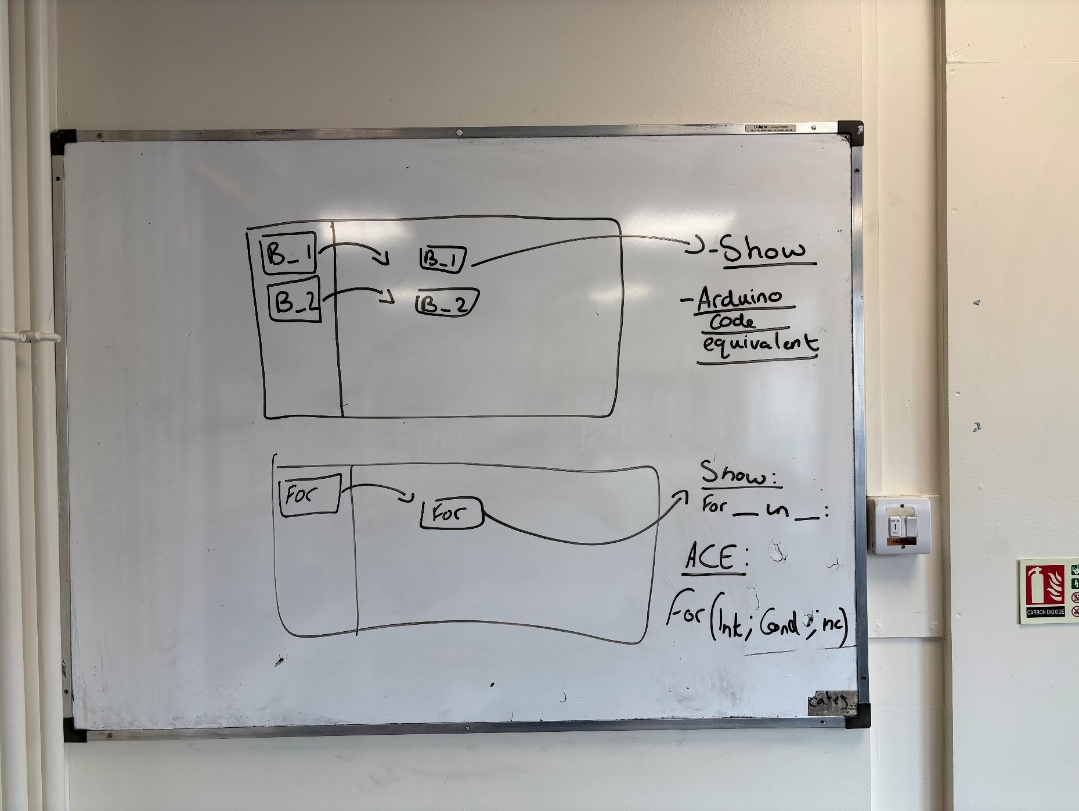 B_1
B_1
B_2
B_2
- Show
- Arduino
Code
equivalent
For
For
Show:
For __ in __:
ACE:
For (Int; Cond; inc)
CARBON DIOXIDE